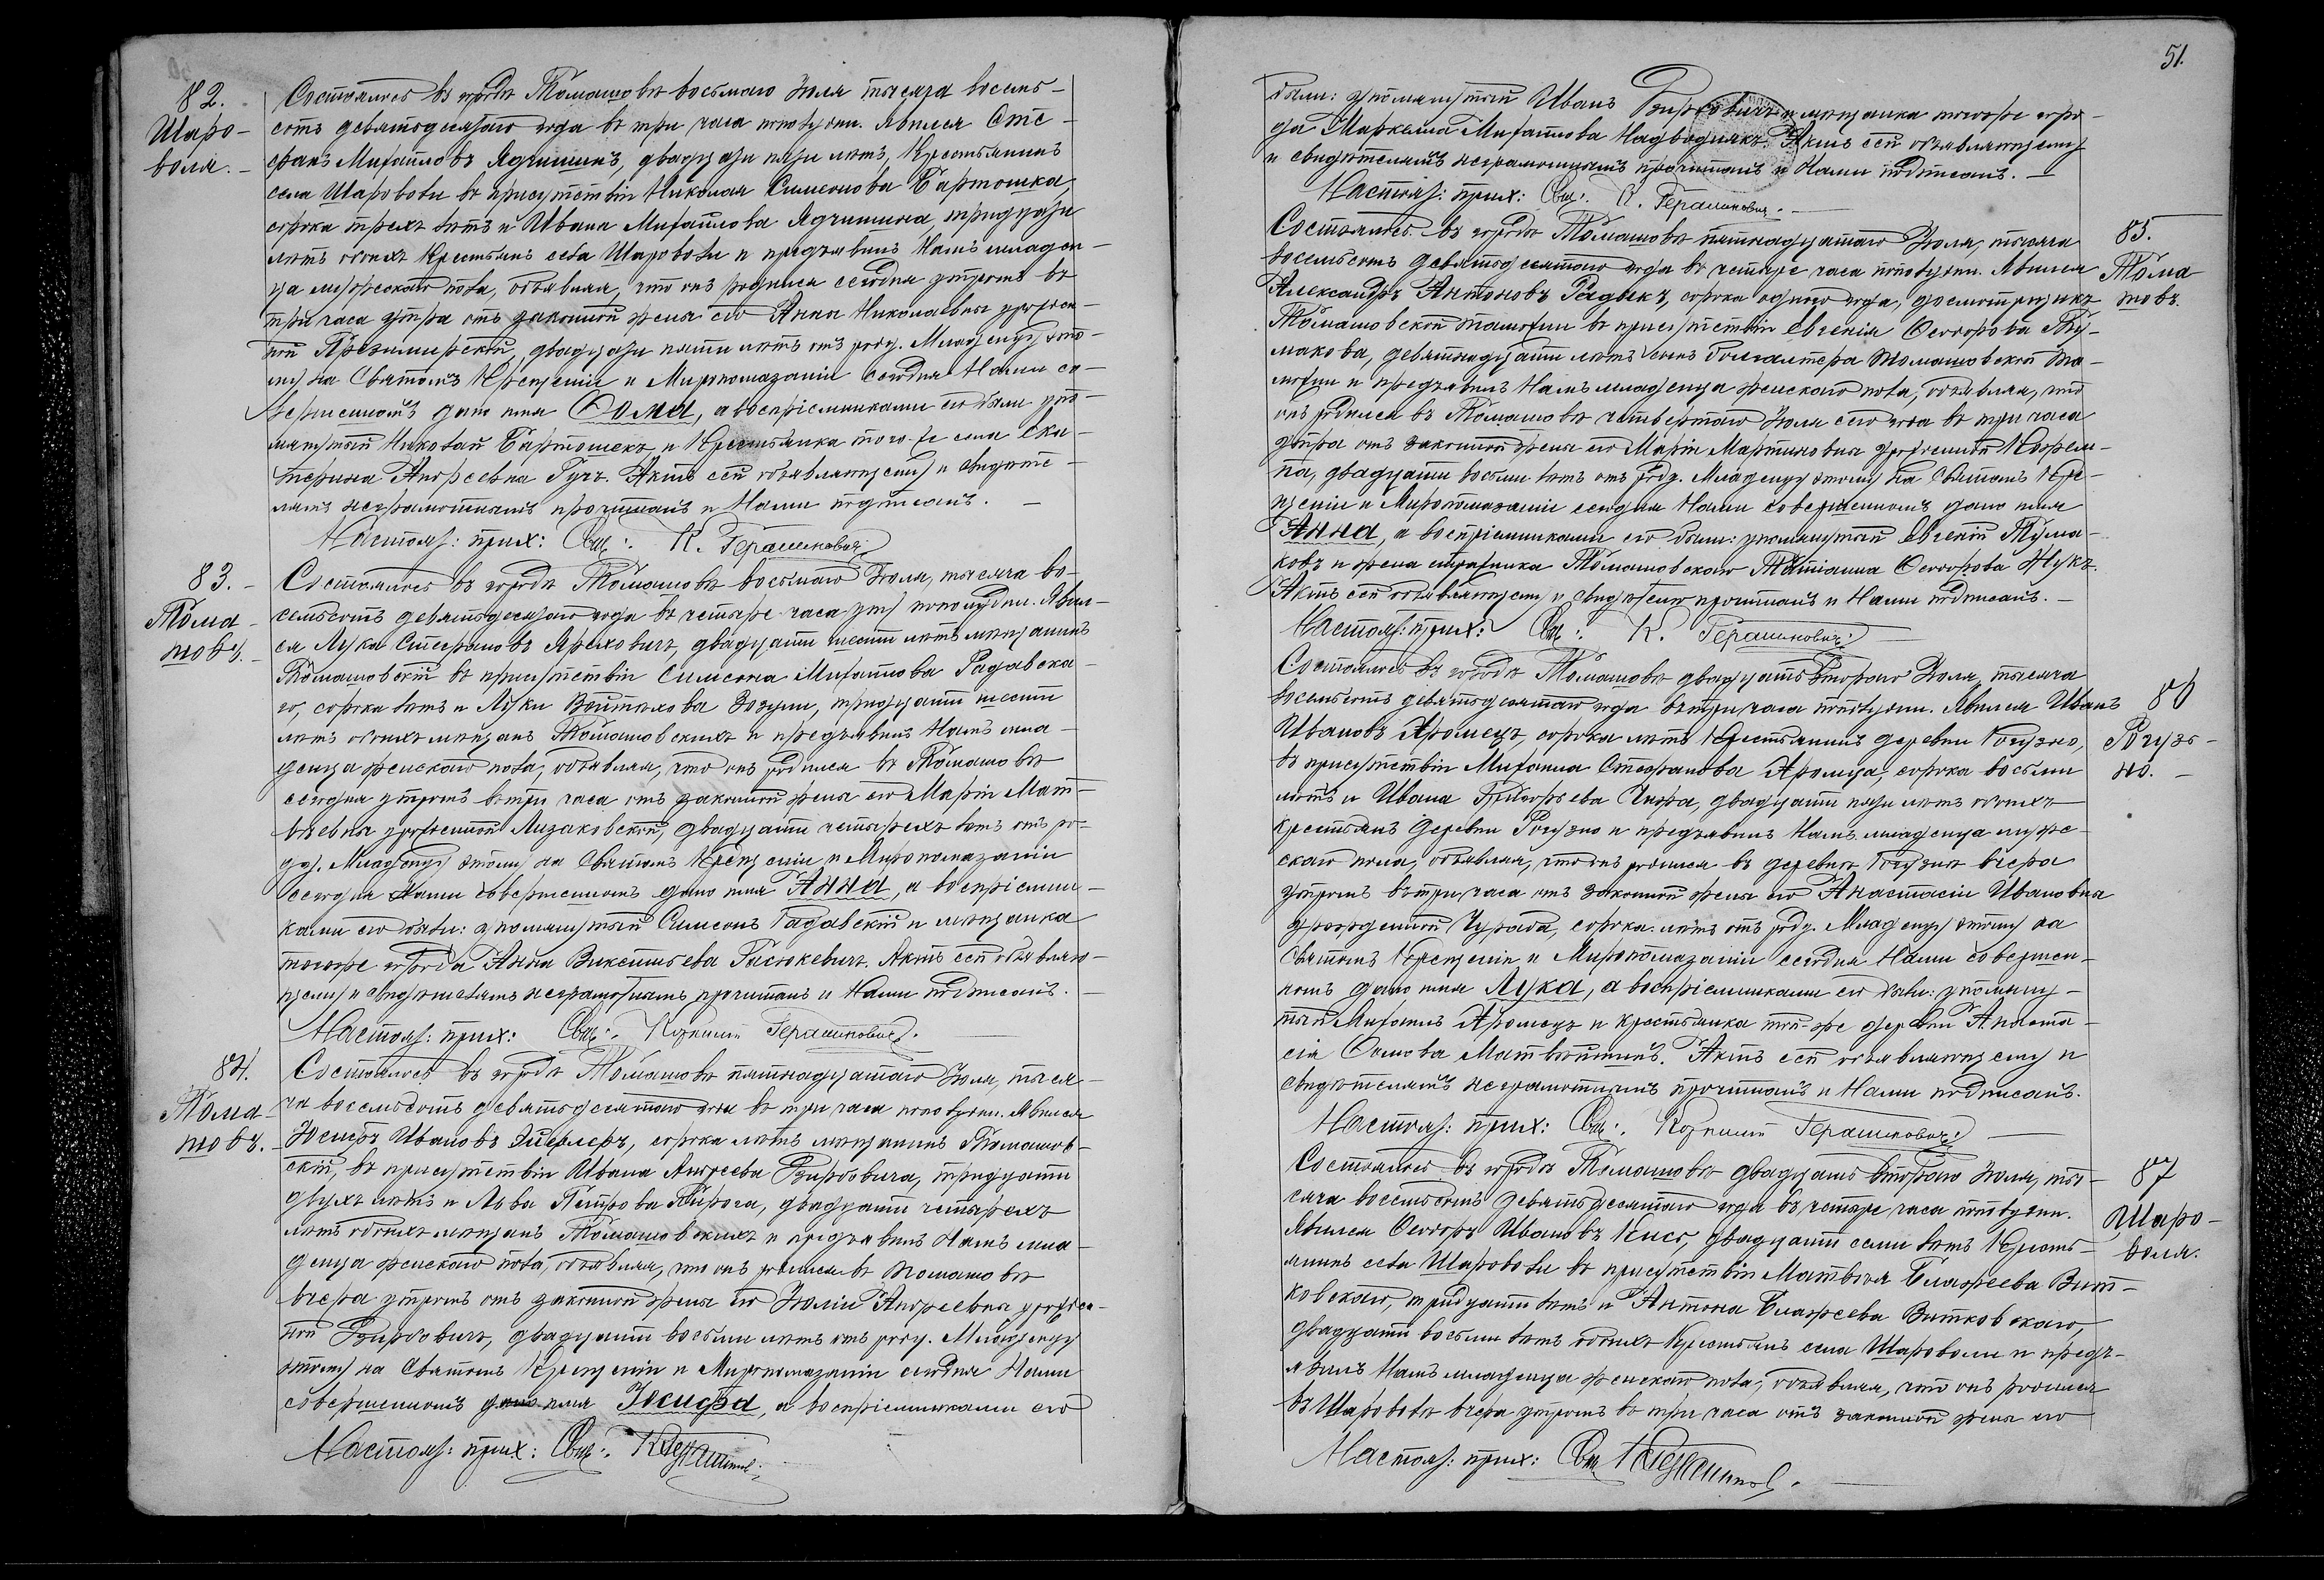 82.
Шаро-
воля.
Состоялось въ городѣ Томашовѣ восьмаго Іюля тысяча восемь-
сотъ девятьдесятаго года въ три часа пополудни. Явился Сте-
фанъ Михайловъ Ядчишинъ, двадцати пяти лѣтъ, Крестьянинъ
села Шароволи въ присутствіи Николая Симеонова Бартошка,
сорока трехъ лѣтъ и Ивана Михайлова Ядчишина, тридцати
лѣтъ обоихъ Крестьянъ села Шароволи и предъявилъ Намъ младен-
ца мужескаго пола, объявляя, что онъ родился сегодня утромъ въ
три часа утра отъ законной жены его Анны Николаевны урожден-
ной двадцати пяти лѣтъ отъ роду. Младенцу это-
му на Святомъ Крещеніи и Миропомазаніи сегодня Нами со-
вершенномъ дано имя Ѳома, а воспріемниками его были упо-
мянутый Николай Бартошекъ и Крестьянка того-же села Ека-
терина Андреевна Гучъ. Актъ сей объявляющему и свидѣте-
лямъ неграмотнымъ прочитанъ и Нами подписанъ.
Настоят: прих: Свящ: К. Герашковичъ
83.
Тома-
шовъ.
Состоялось въ городѣ Томашовѣ восьмаго Іюля, тысяча во-
семьсотъ девятьдесятаго года въ четыре часа пополудни. Явил-
ся Лука Стефановъ двадцати шести лѣтъ мѣщанинъ
Томашовскій въ присутствіи Симеона Михайлова Радавска-
го, сорока лѣтъ и Луки Войтѣхова Зозули, тридцати шести
лѣтъ обоихъ мѣщанъ Томашовскихъ и предъявилъ Намъ мла-
денца женскаго пола, объявляя, что онъ родился въ Томашовѣ
сегодня утромъ въ три часа отъ законной жены его Маріи Мат-
вѣевны урожденной Лизаковской, двадцати четырехъ лѣтъ отъ ро-
ду. Младенцу этому на Святомъ Крещеніи и Миропомазаніи
сегодня Нами совершенномъ дано имя Анна, а воспріемни-
ками его были: упомянутый Симеонъ Радавскій и мѣщанка
тогоже города Анна Викентьева Гасюкевичъ. Актъ сей объявляю-
щему и свидѣтелямъ неграмотнымъ прочитанъ и Нами подписанъ.
Настоят: прих: Свящ: Корнилій Герашковичъ.
84.
Тома-
шовъ.
Состоялось въ городѣ Томашовѣ пятнадцатаго Іюля, тыся-
ча восемьсотъ девятьдесятаго года въ три часа пополудни. Явился
Іосифъ Ивановъ сорока лѣтъ мѣщанинъ Томашов-
скій, въ присутствіи Ивана Андреева тридцати
двухъ лѣтъ и Льва Петрова двадцати четырехъ
лѣтъ обоихъ мѣщанъ Томашовскихъ и предъявилъ Намъ мла-
денца женскаго пола, объявляя, что онъ родился въ Томашовѣ
вчера утромъ отъ законной жены его Юліи Андреевны урожден-
ной двадцати восьми лѣтъ отъ роду. Младенцу
этому на Святомъ Крещеніи и Миропомазаніи сегодня Нами
совершенномъ дано имя Іосифа, а воспріемниками его
Настоят: прих: Свящ: К. Герашкович
51.
были: упомянутый Иванъ и мѣщанка тогоже горо-
да Маркела Михайлова Надводнякъ. Актъ сей объявляющему
и свидѣтелямъ неграмотнымъ прочитанъ и Нами подписанъ.
Настоят: прих: Свящ: К. Герашковичъ.
85.
Тома
шовъ.
Состоялось въ городѣ Томашовѣ пятнадцатаго Іюля, тысяча
восемьсотъ девятьдесятаго года въ четыре часа пополудни. Явился
Александръ Антоновъ Радыкъ, сорока одного года, досмотрщикъ
Томашовской таможни въ присутствіи Евгенія Ѳеодорова Ту-
макова, девятнадцати лѣтъ сына Бухгалтера Томашовской та-
можни и предъявилъ Намъ младенца женскаго пола, объявляя, что
онъ родился въ Томашовѣ четвертаго Іюля сего года въ три часа
утра отъ законной жены его Маріи Мартиновны урожденной
двадцати восьми лѣтъ отъ роду. Младенцу этому на Святомъ Кре-
щеніи и Миропомазаніи сегодня Нами совершенномъ дано имя
Анна, а воспріемниками его были: упомянутый Евгеній Тума-
ковъ и жена стражника Томашовскаго Татіанна Ѳеодорова Жукъ.
Актъ сей объявляющему и свидѣтелю прочитанъ и Нами подписанъ.
Настоят: прих: Свящ: К. Герашковичъ
86
Рогузь-
но.
Состоялось въ городѣ Томашовѣ двадцать втораго Іюля, тысяча
восемьсотъ девятьдесятаго года въ три часа пополудни. Явился Иванъ
Ивановъ Яромецъ, сорока лѣтъ Крестьянинъ деревни Рогузно,
въ присутствіи Михаила Стефанова Яромца, сорока восьми
лѣтъ и Ивана Григорьева двадцати пяти лѣтъ обоихъ
Крестьянъ деревни Рогузно и предъявилъ Намъ младенца муже-
скаго пола, объявляя, что онъ родился въ деревнѣ Рогузнѣ вчера
утромъ въ три часа отъ законной жены его Анастасіи Ивановны
урожденной Чурада, сорока лѣтъ отъ роду. Младенцу этому на
Святомъ Крещеніи и Миропомазаніи сегодня Нами совершен-
номъ дано имя Лука, а воспріемниками его были: упомяну-
тый Михаилъ Яромецъ и крестьянка той-же деревни Анаста-
сія Ѳомова Матвѣйшинъ. Актъ сей объявляющему и
свидѣтелямъ неграмотнымъ прочитанъ и Нами подписанъ.
Настоят: прих: Свящ: Корнилій Герашковичъ
87
Шаро-
воля.
Состоялось въ городѣ Томашовѣ двадцать втораго Іюля, ты-
сяча восемьсотъ девятьдесятаго года въ четыре часа пополудни.
Явился Ѳеодоръ Ивановъ Кисъ, двадцати семи лѣтъ Кресть-
янинъ села Шароволи въ присутствіи Матвѣя Блажеева Вит-
ковскаго, тридцати лѣтъ и Антона Блажеева Витковскаго,
двадцати восьми лѣтъ обоихъ Крестьянъ села Шароволи и предъ-
явилъ Намъ младенца женскаго пола, объявляя, что онъ родился
въ Шароволѣ вчера утромъ въ три часа отъ законной жены его
Настоят: прих: Свящ К. Герашкович.